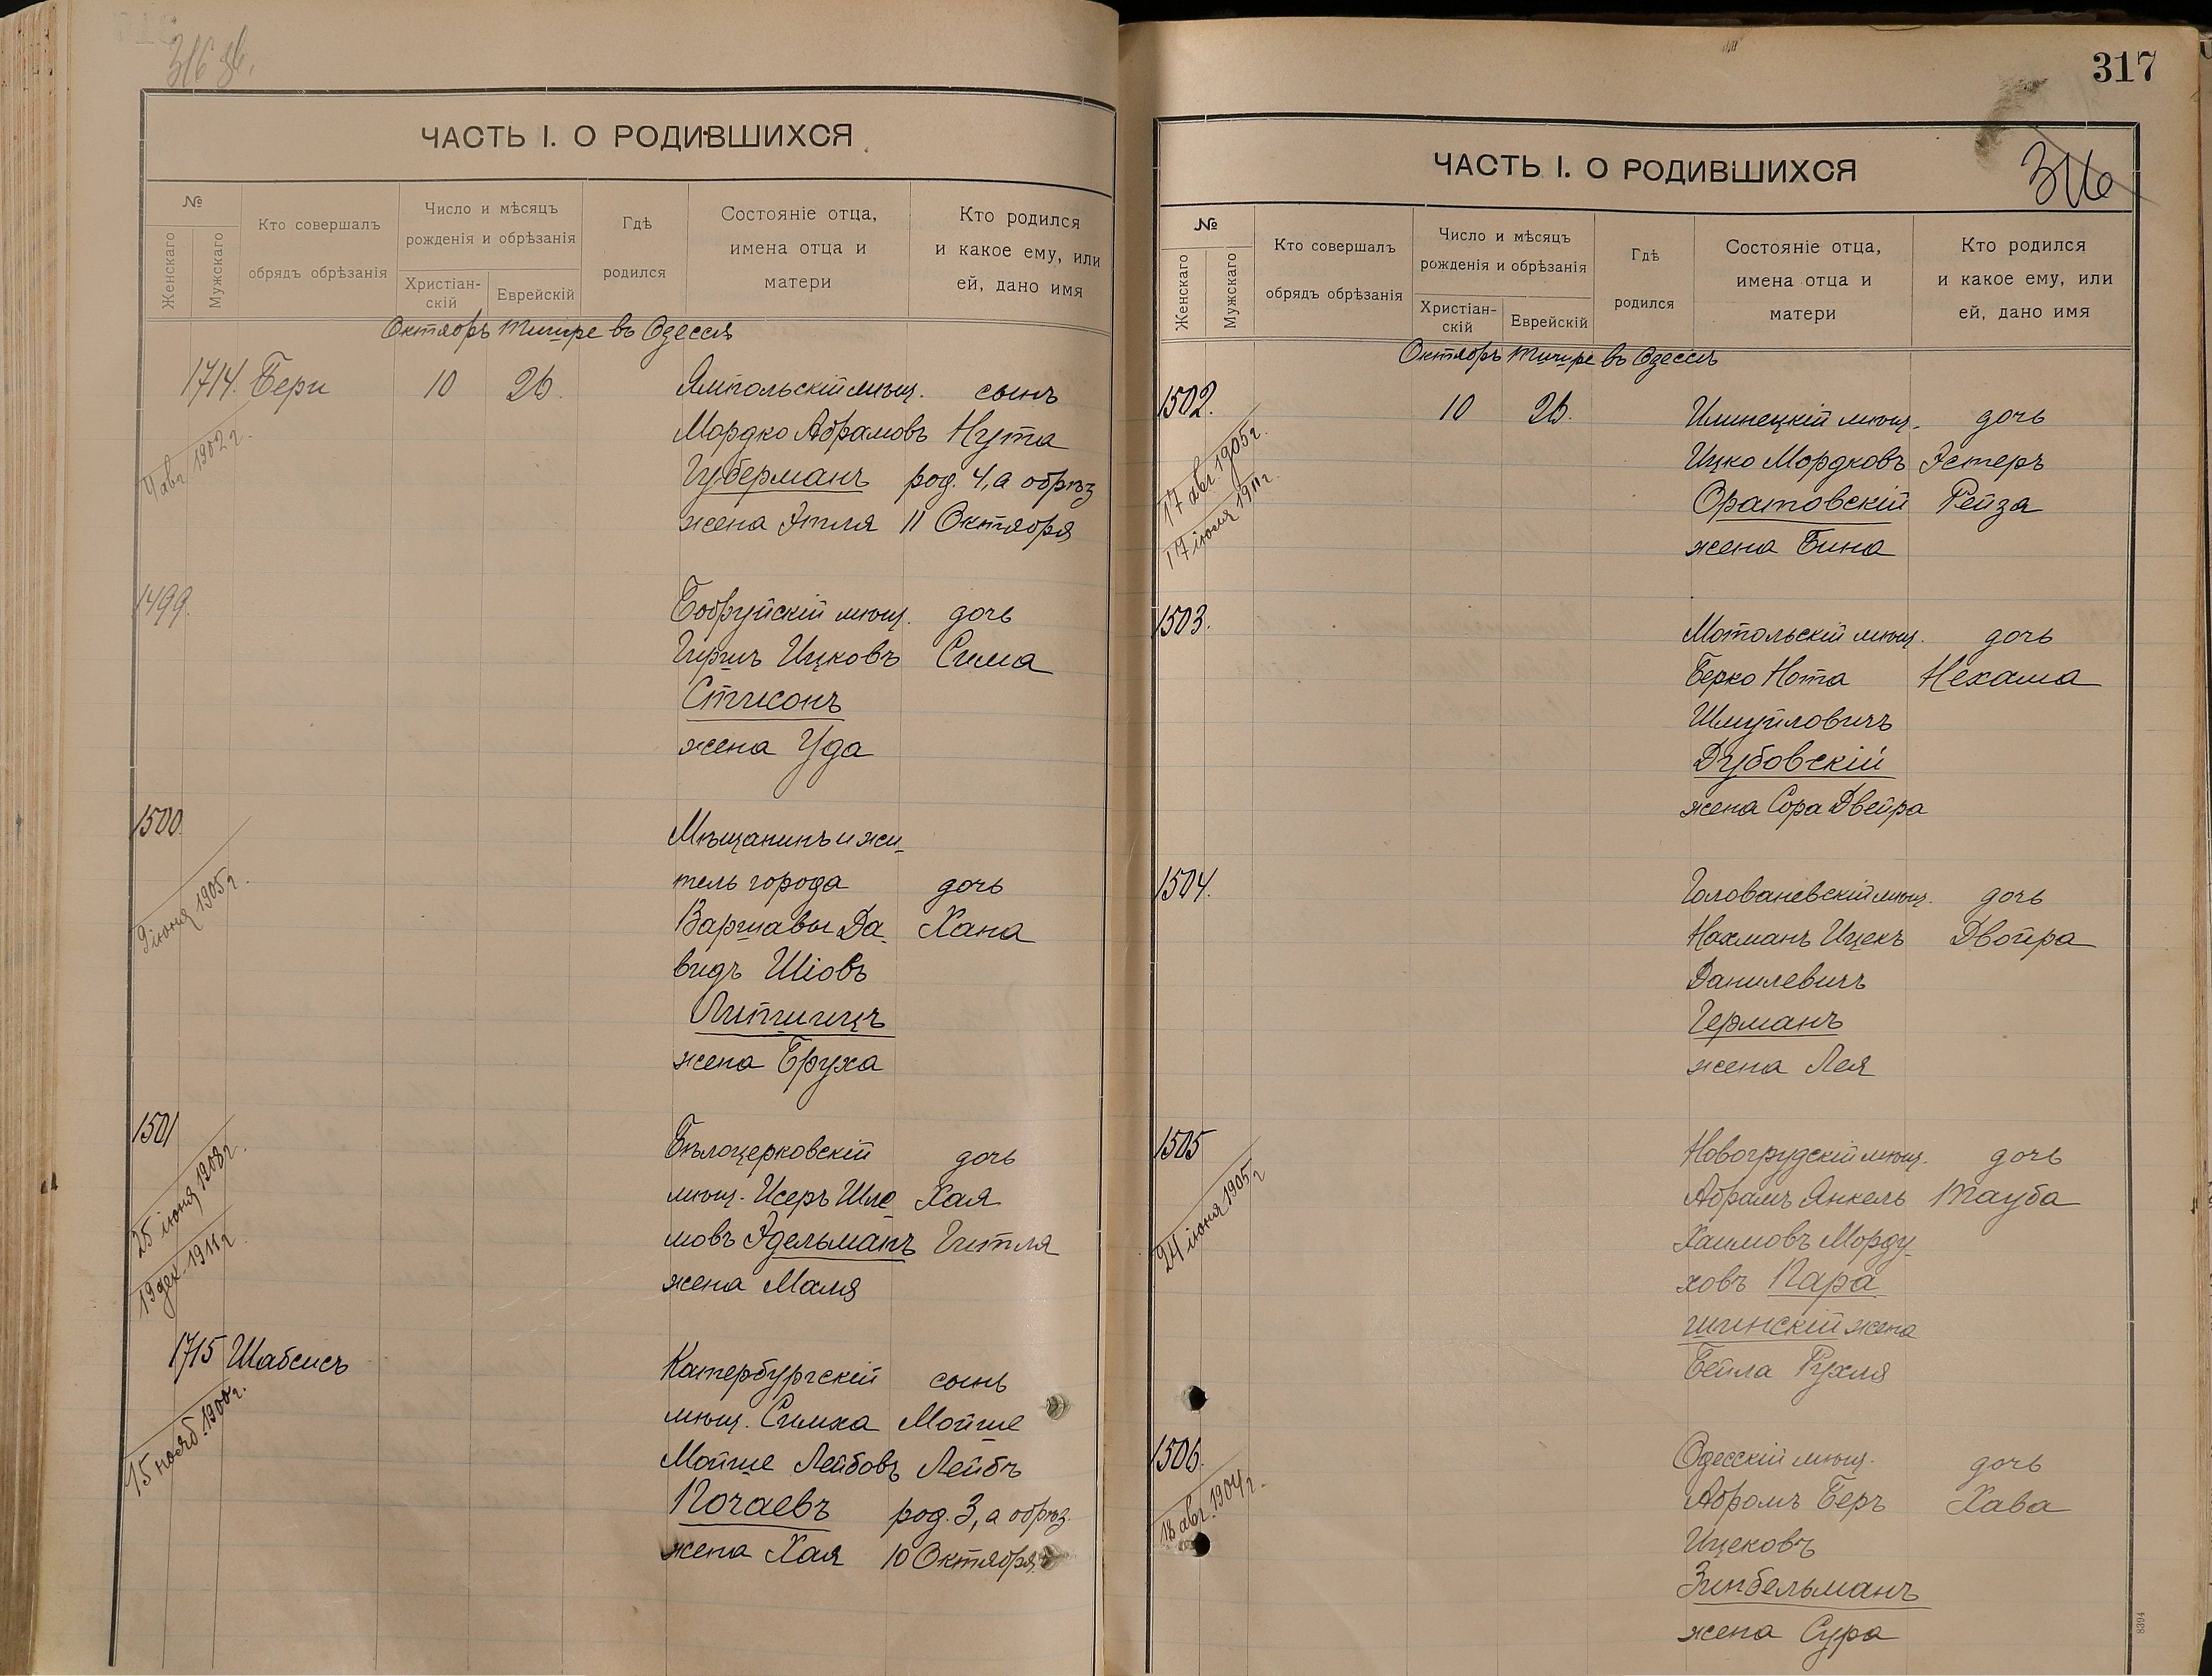 316 об.
ЧАСТЬ I. О РОДИВШИХСЯ
№
Женскаго
Мужскаго
Кто совершалъ
обрядъ обрѣзанія
Число и мѣсяцъ
рожденія и обрѣзанія
Христіан-
скій
Еврейскій
Гдѣ
родился
Состояніе отца,
имена отца и
матери
Кто родился
и какое ему, или
ей, дано имя
Октябрь Тишре въ Одессѣ
1714. Бери 10 26. Ямпольскій мѣщ. сынъ
4 авг 1902 г.
Мордко Абрамовъ Нута
Губерманъ род. 4, а обрѣз
жена Этля 11 Октября
1499. Бобруйскій мѣщ. дочь
Гиршъ Ицковъ Сима
Стисонъ
жена Уда
1500 Мѣщанинъ и жи-
9 іюня 1905 г.
тель города дочь
Варшавы Да- Хана
видъ Шіовъ
Липшицъ
жена Бруха
1501 Бѣлоцерковскій дочь
25 іюня 1908 г.
19 дек. 1911 г.
мѣщ. Исеръ Шле Хая
мовъ Эдельманъ Гитля
жена Маля
1715 Шабсисъ Катербургскій сынъ
15 нояб. 1900 г.
мѣщ. Симха Мойше
Мойше Лейбовъ Лейбъ
Почаевъ род. 3, а обрѣз.
жена Хая 10 Октября
317
ЧАСТЬ I. О РОДИВШИХСЯ
316
№
Женскаго
Мужскаго
Кто совершалъ
обрядъ обрѣзанія
Число и мѣсяцъ
рожденія и обрѣзанія
Христіан-
скій
Еврейскій
Гдѣ
родился
Состояніе отца,
имена отца и
матери
Кто родился
и какое ему, или
ей, дано имя
Октябрь Тишре въ Одессѣ
1502. 10 26. Илинецкій мѣщ. дочь
17 авг. 1905 г.
17 іюля 1911 г.
Ицко Мордковъ Эстеръ
Оратовскій Рейза
жена Бина
1503. Мотольскій мѣщ. дочь
Берко Нота Нехама
Шмуйловичъ
Дубовскій
жена Сора Двейра
1504. Голованевскій мѣщ. дочь
Нахманъ Ицекъ Двойра
Данилевичъ
Германъ
жена Лея
1505 Новогрудскій мѣщ. дочь
24 іюня 1905 г
Абрамъ Янкель Тауба
Хаимовъ Морду-
ховъ Пара
шинскій жена
Бейла Рухля
1506. Одесскій мѣщ. дочь
18 авг. 1904 г.
Абрамъ Беръ Хава
Ицековъ
Зинбельманъ
жена Сура
8394